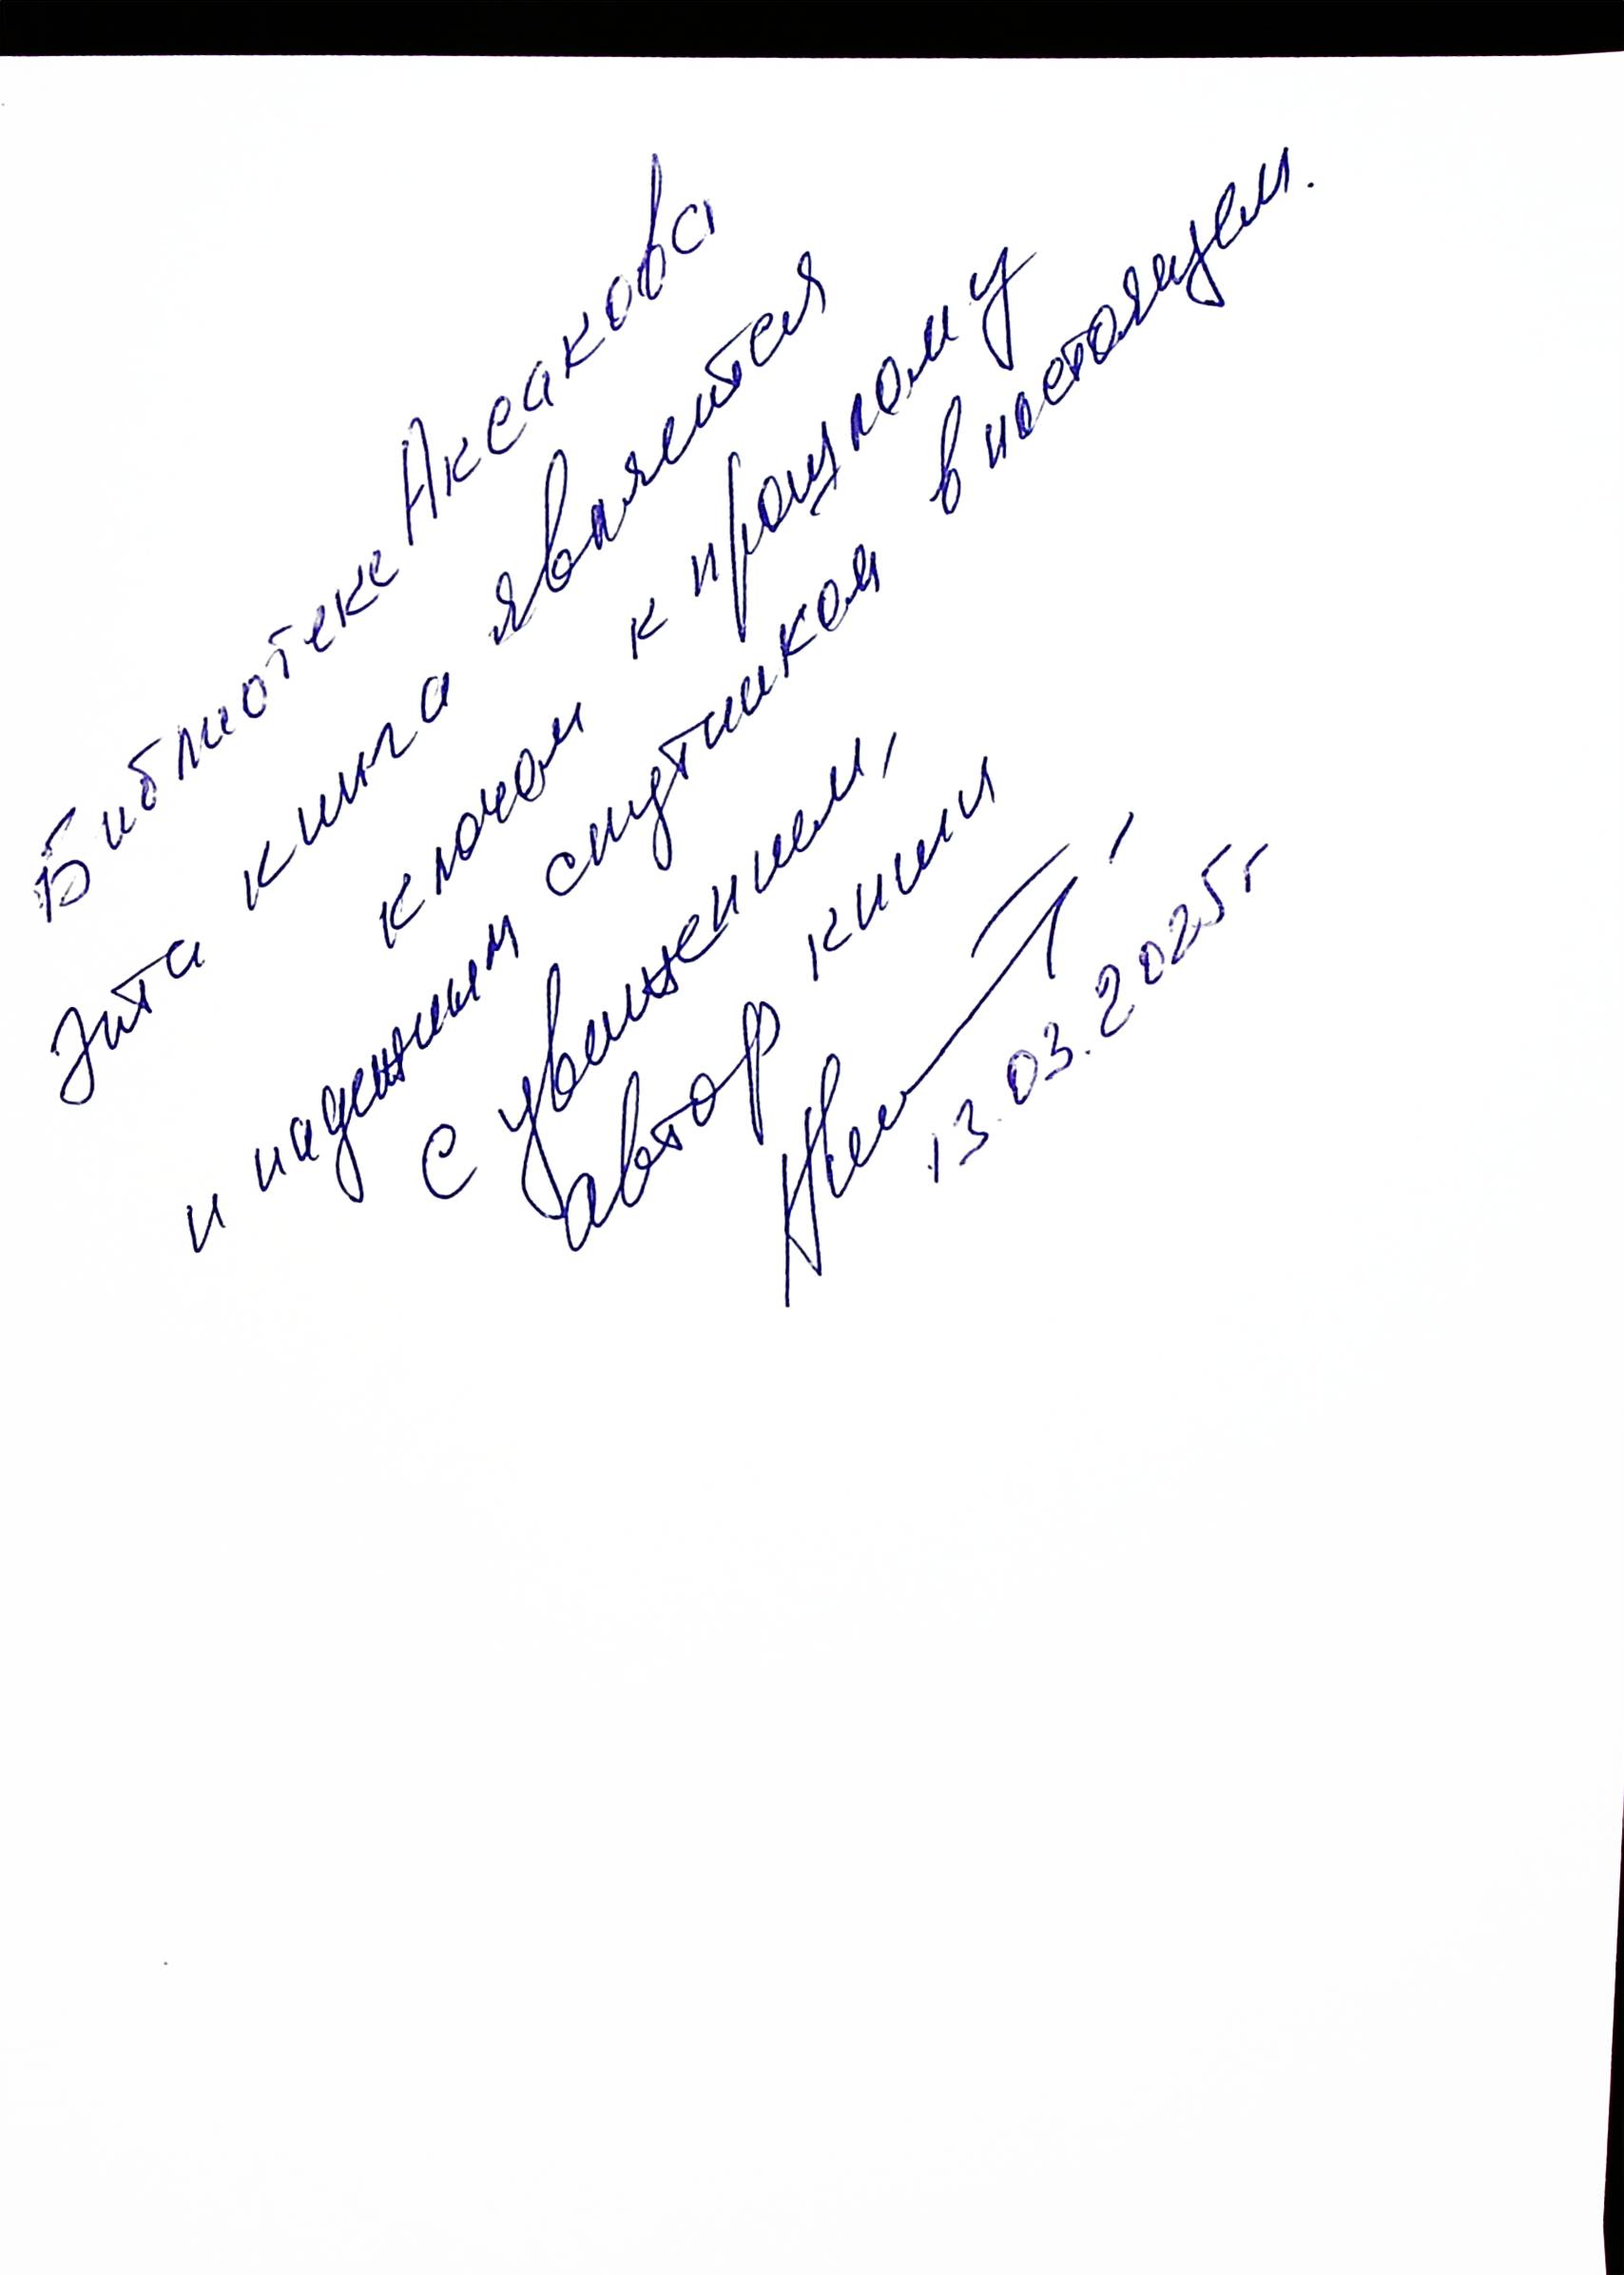 Библиотеке Аксакова
Эта книга является
ключом к прошлому
и надежным спутником в настоящем.
С уважением,
автор книги
13.03.2025г